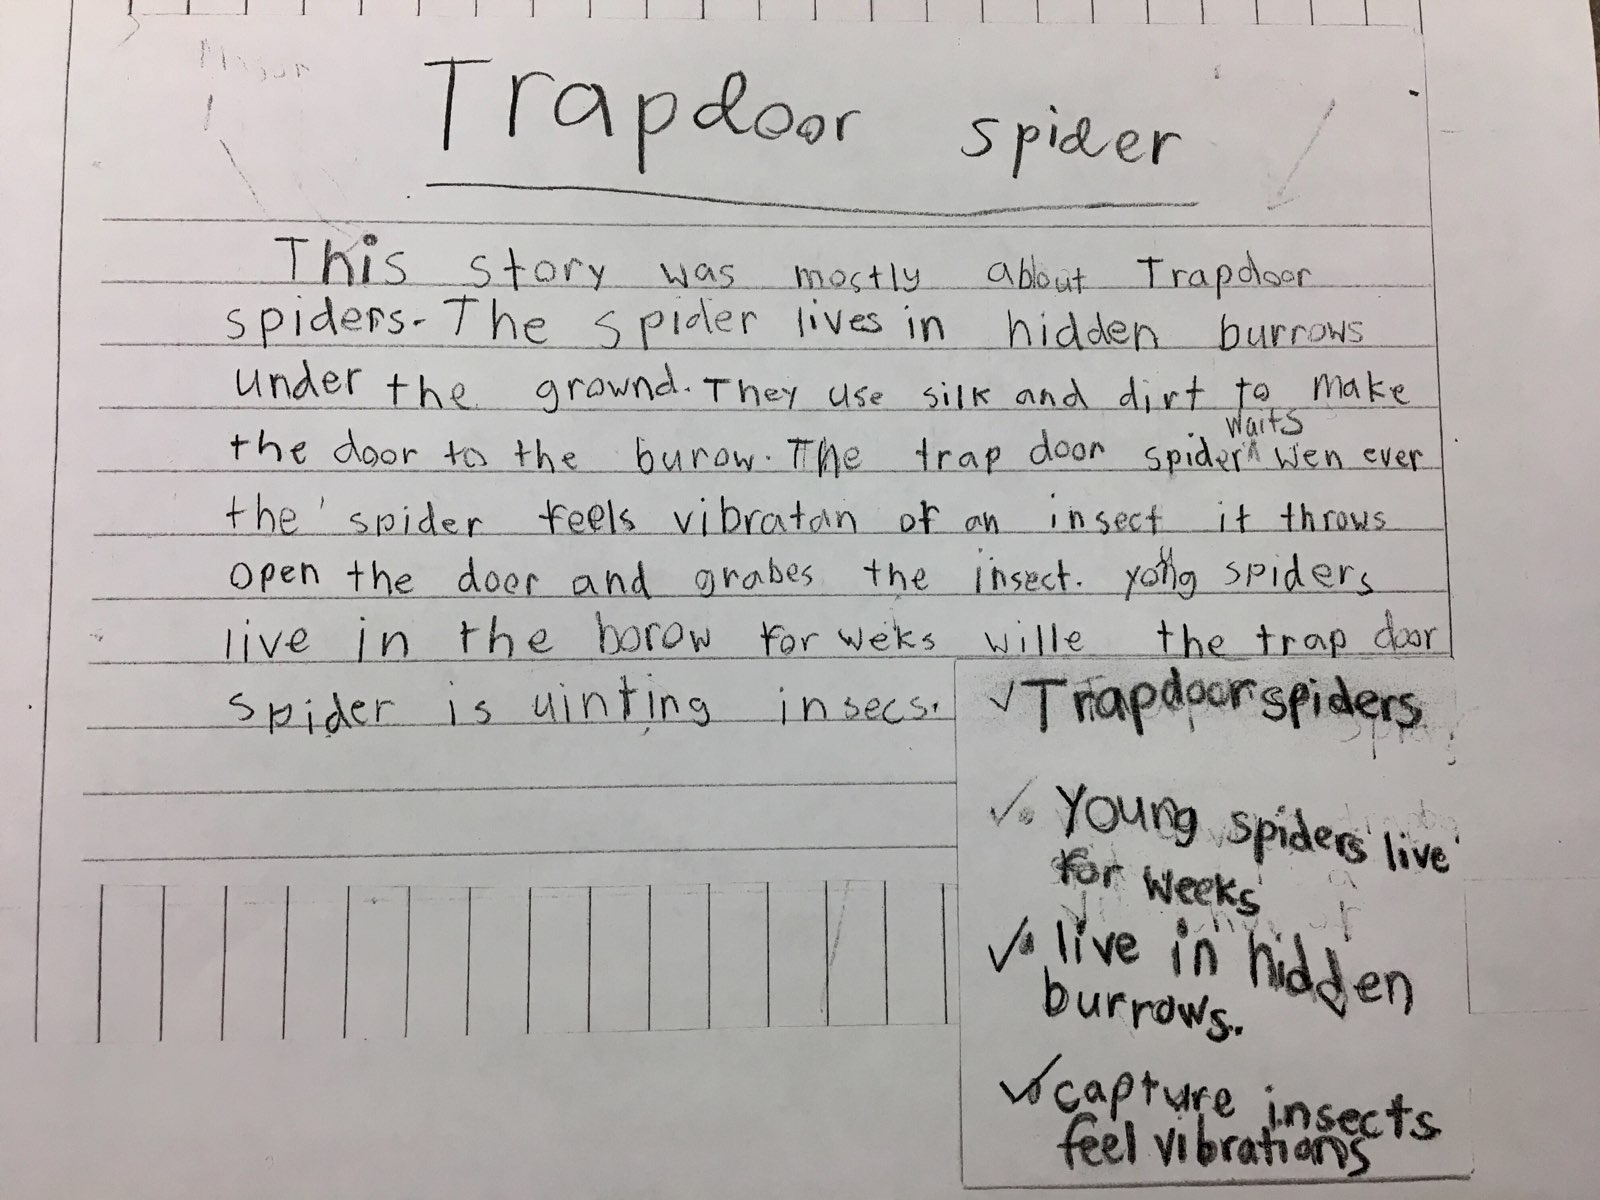 Trapdoor spider
This story was mostly about Trapdoor
spiders. The spider lives in hidden burrows
under the grownd. They use silk and dirt to make
the door to the burow. The trap door spider waits wen ever
the spider feels vibratan of an insect it throws
open the door and grabes the insect. young spiders
live in the borow for weks wille the trap door
spider is uinting insecs.
✓ Trapdoor spiders
✓• Young spiders live
for weeks
✓• live in hidden
burrows.
✓• capture insects
feel vibrations